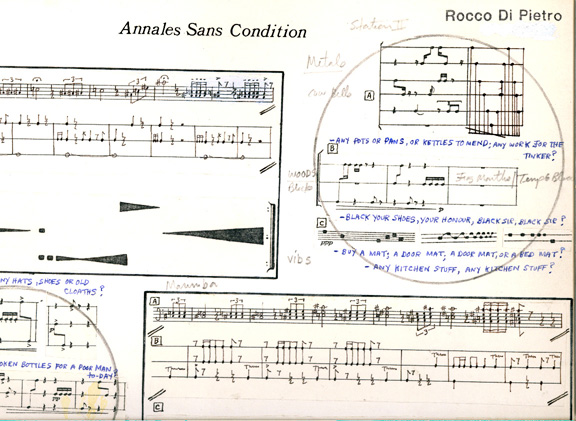 Annales Sans Condition
Rocco Di Pietro
Station II
Metals
Cow Bells
A
-ANY POTS OR PANS, OR KETTLES TO MEND; ANY WORK FOR THE
TINKER?
B
WOODS
Blocks
Temple
-BLACK YOUR SHOES, YOUR HONOUR, BLACK SIR, BLACK SIR?
C
ppp
-BUY A MAT; A DOOR MAT, A DOOR MAT, OR A BED MAT?
-ANY KITCHEN STUFF, ANY KITCHEN STUFF?
vibs
NY HATS, SHOES OR OLD
CLOATHS?
OKEN BOTTLES FOR A POOR MAN
TO-DAY?
pp
Marimba
A
B
C